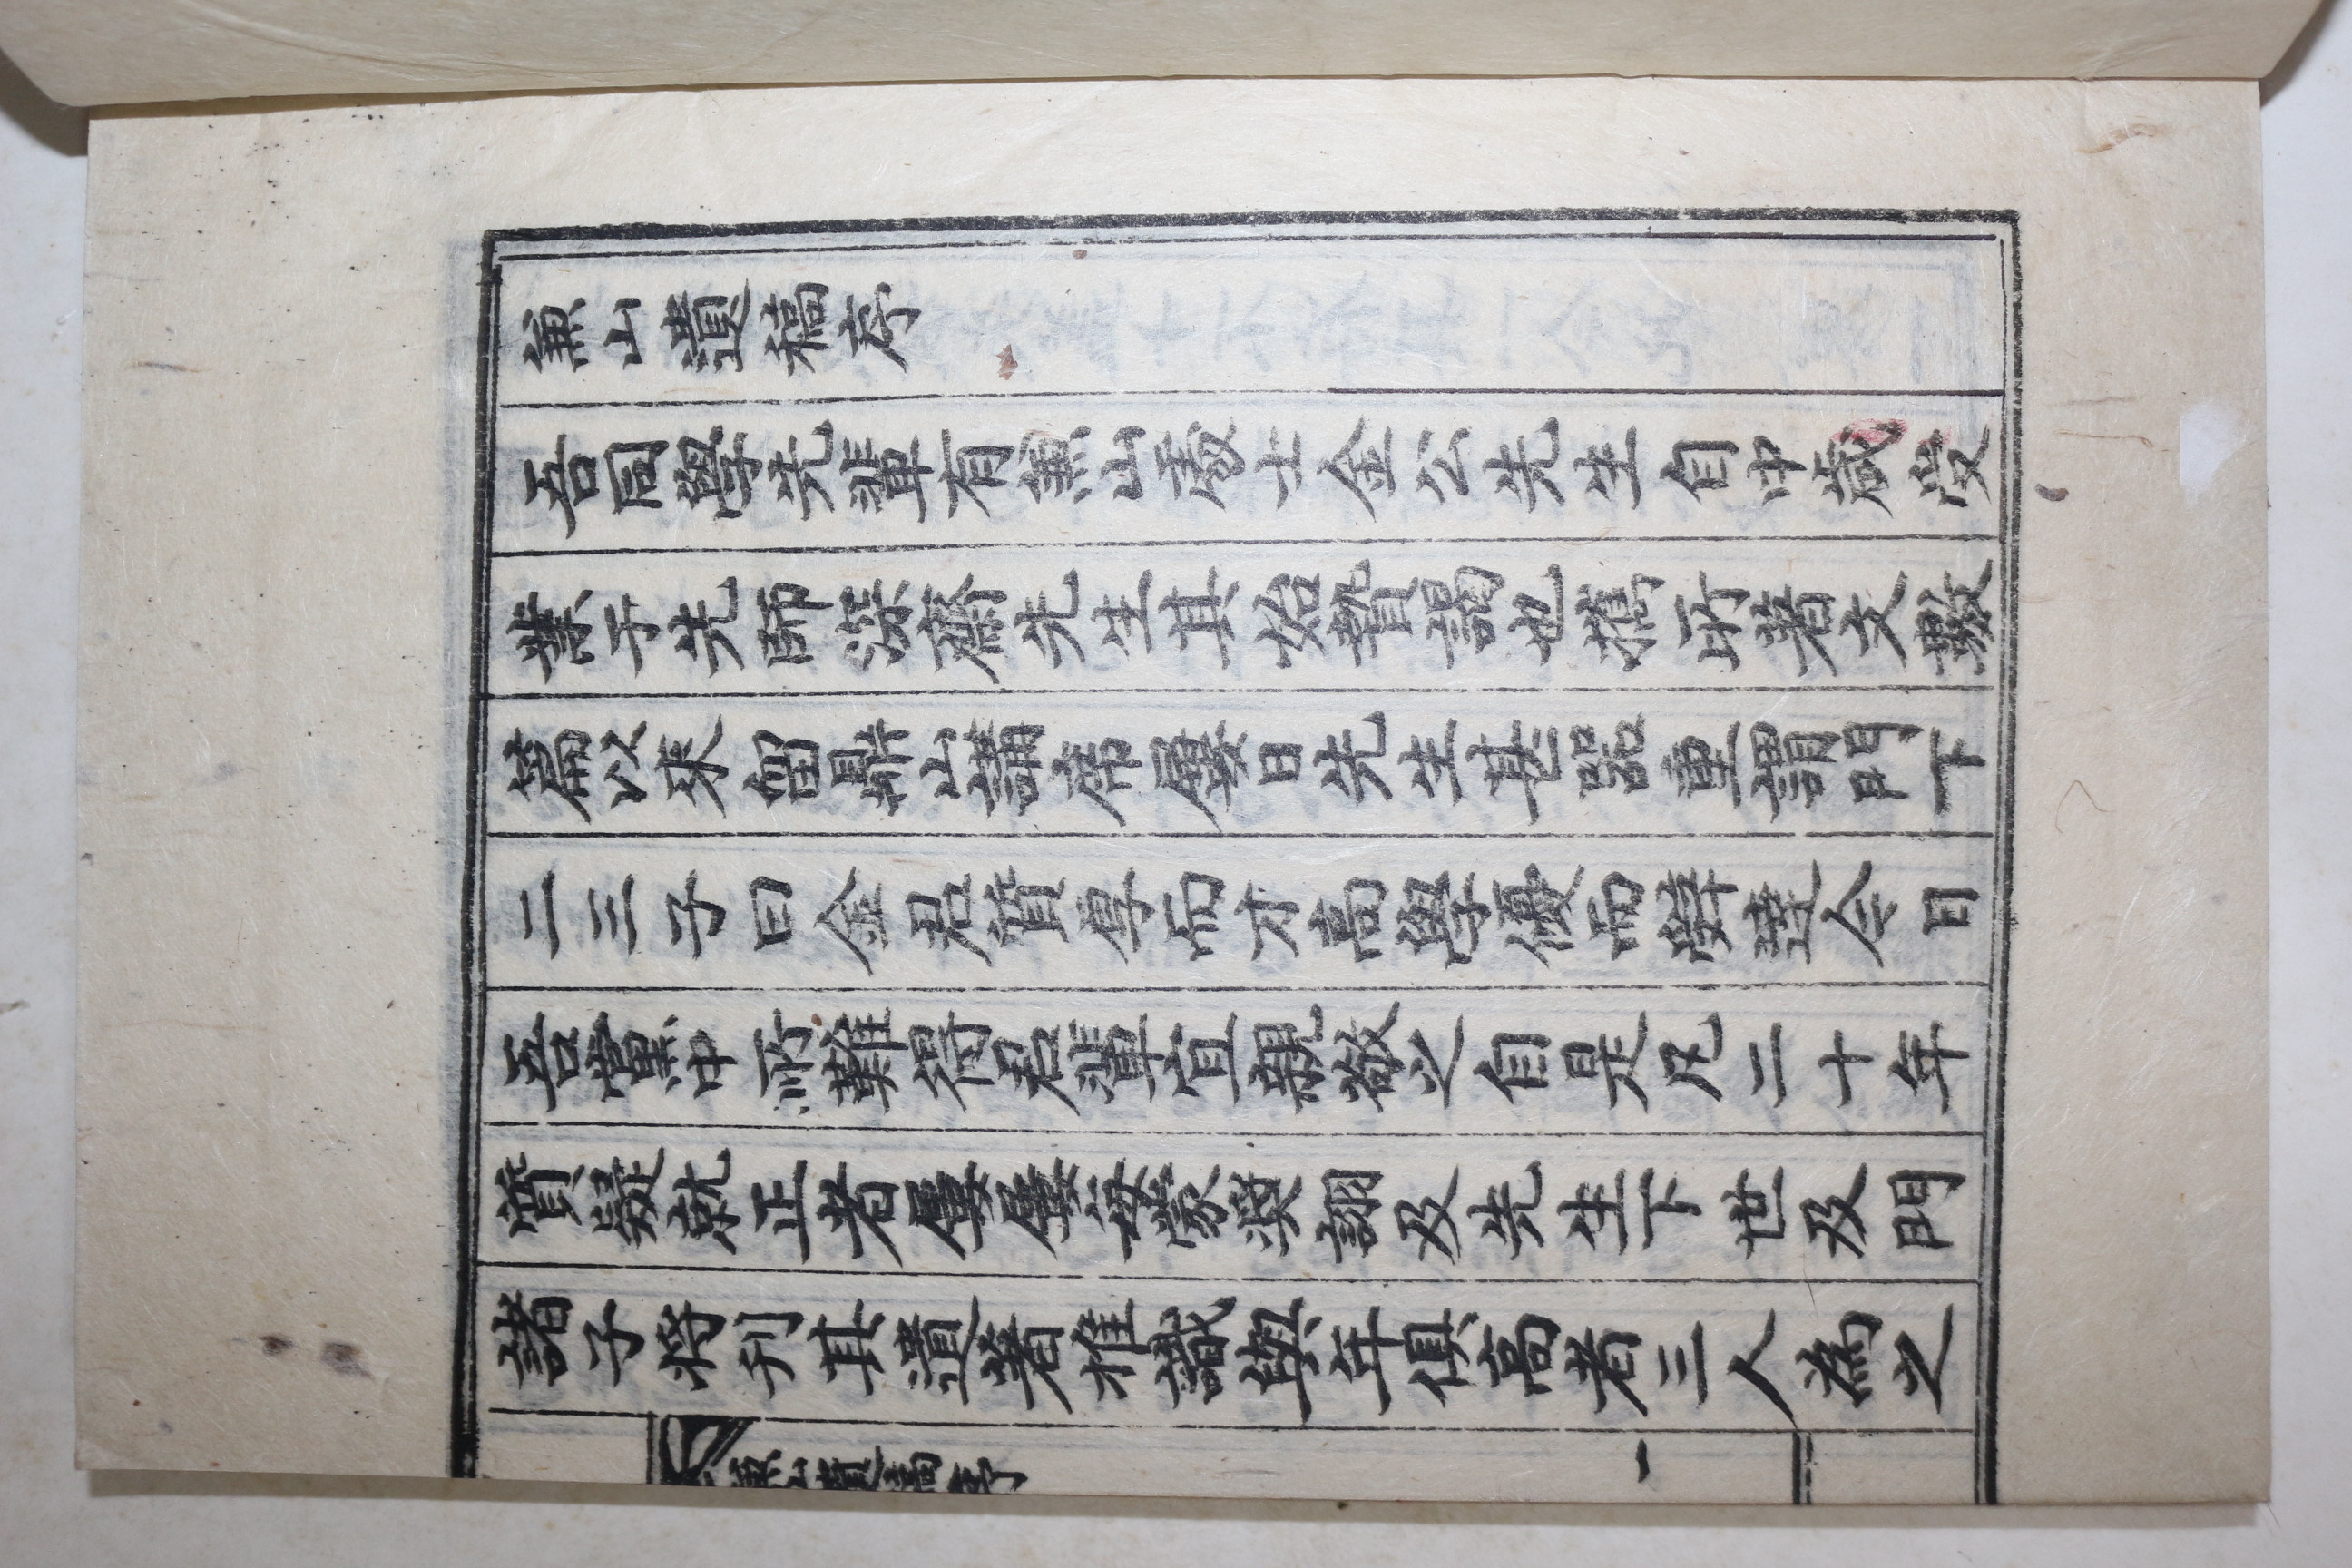 兼山遺稿序
吾同學先輩有兼山處士金公先生自中歲受
業于先師深齋先生其始贄謁也携所著文數
篇以來留鼎山講席屢日先生甚器重謂門下
二三子曰金君質厚而才高學優而辭達今日
吾黨中所難得君輩宜親敬之自是凡二十年
質疑就正者屢屢每蒙奬詡及先生下世及門
諸子將刊其遺著推識與年俱高者三人爲之
兼山遺稿序 一